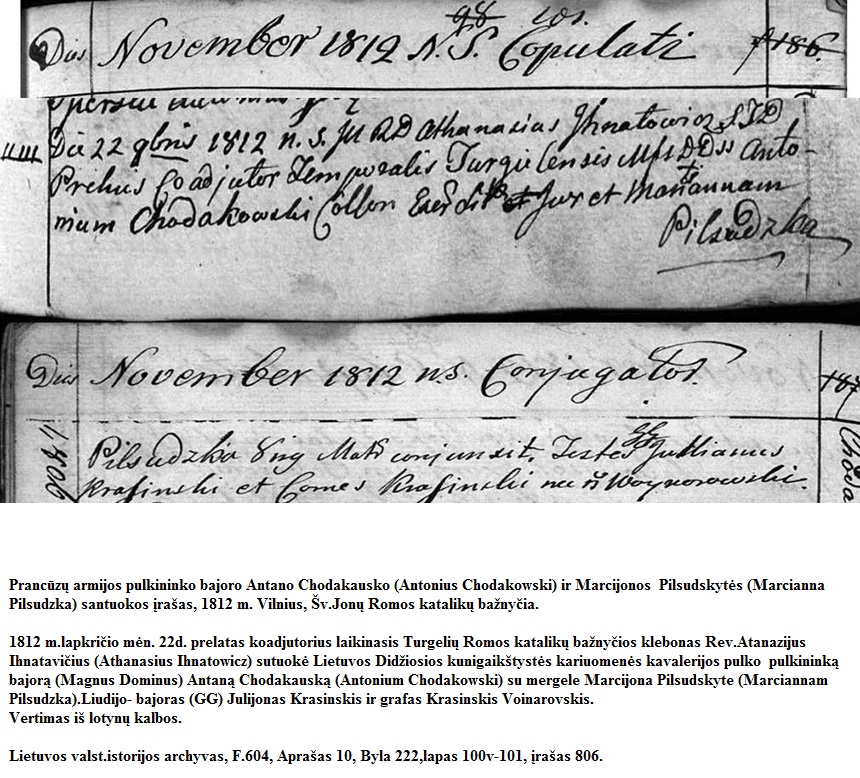 Dies November 1812 N.S. Copulati 186.
98 101.
Die 22 9bris 1812 n.s. Athanasius Ihnatowicz STD
Coadjutor Temporalis Turgielensis Anto-
nium Chodakowski et Mariannam
Pilsudzka
Dies November 1812 n.s. Conjugator. 187
Pilsudzka Virg conjunxit, Testes Jullianus
Krasinski et Comes Krasinski Woynorowski.
Prancūzų armijos pulkininko bajoro Antano Chodakausko (Antonius Chodakowski) ir Marcijonos Pilsudskytės (Marcianna
Pilsudzka) santuokos įrašas, 1812 m. Vilnius, Šv.Jonų Romos katalikų bažnyčia.
1812 m.lapkričio mėn. 22d. prelatas koadjutorius laikinasis Turgelių Romos katalikų bažnyčios klebonas Rev.Atanazijus
Ihnatavičius (Athanasius Ihnatowicz) sutuokė Lietuvos Didžiosios kunigaikštystės kariuomenės kavalerijos pulko pulkininką
bajorą (Magnus Dominus) Antaną Chodakauską (Antonium Chodakowski) su mergele Marcijona Pilsudskyte (Marciannam
Pilsudzka).Liudijo- bajoras (GG) Julijonas Krasinskis ir grafas Krasinskis Voinarovskis.
Vertimas iš lotynų kalbos.
Lietuvos valst.istorijos archyvas, F.604, Aprašas 10, Byla 222,lapas 100v-101, įrašas 806.